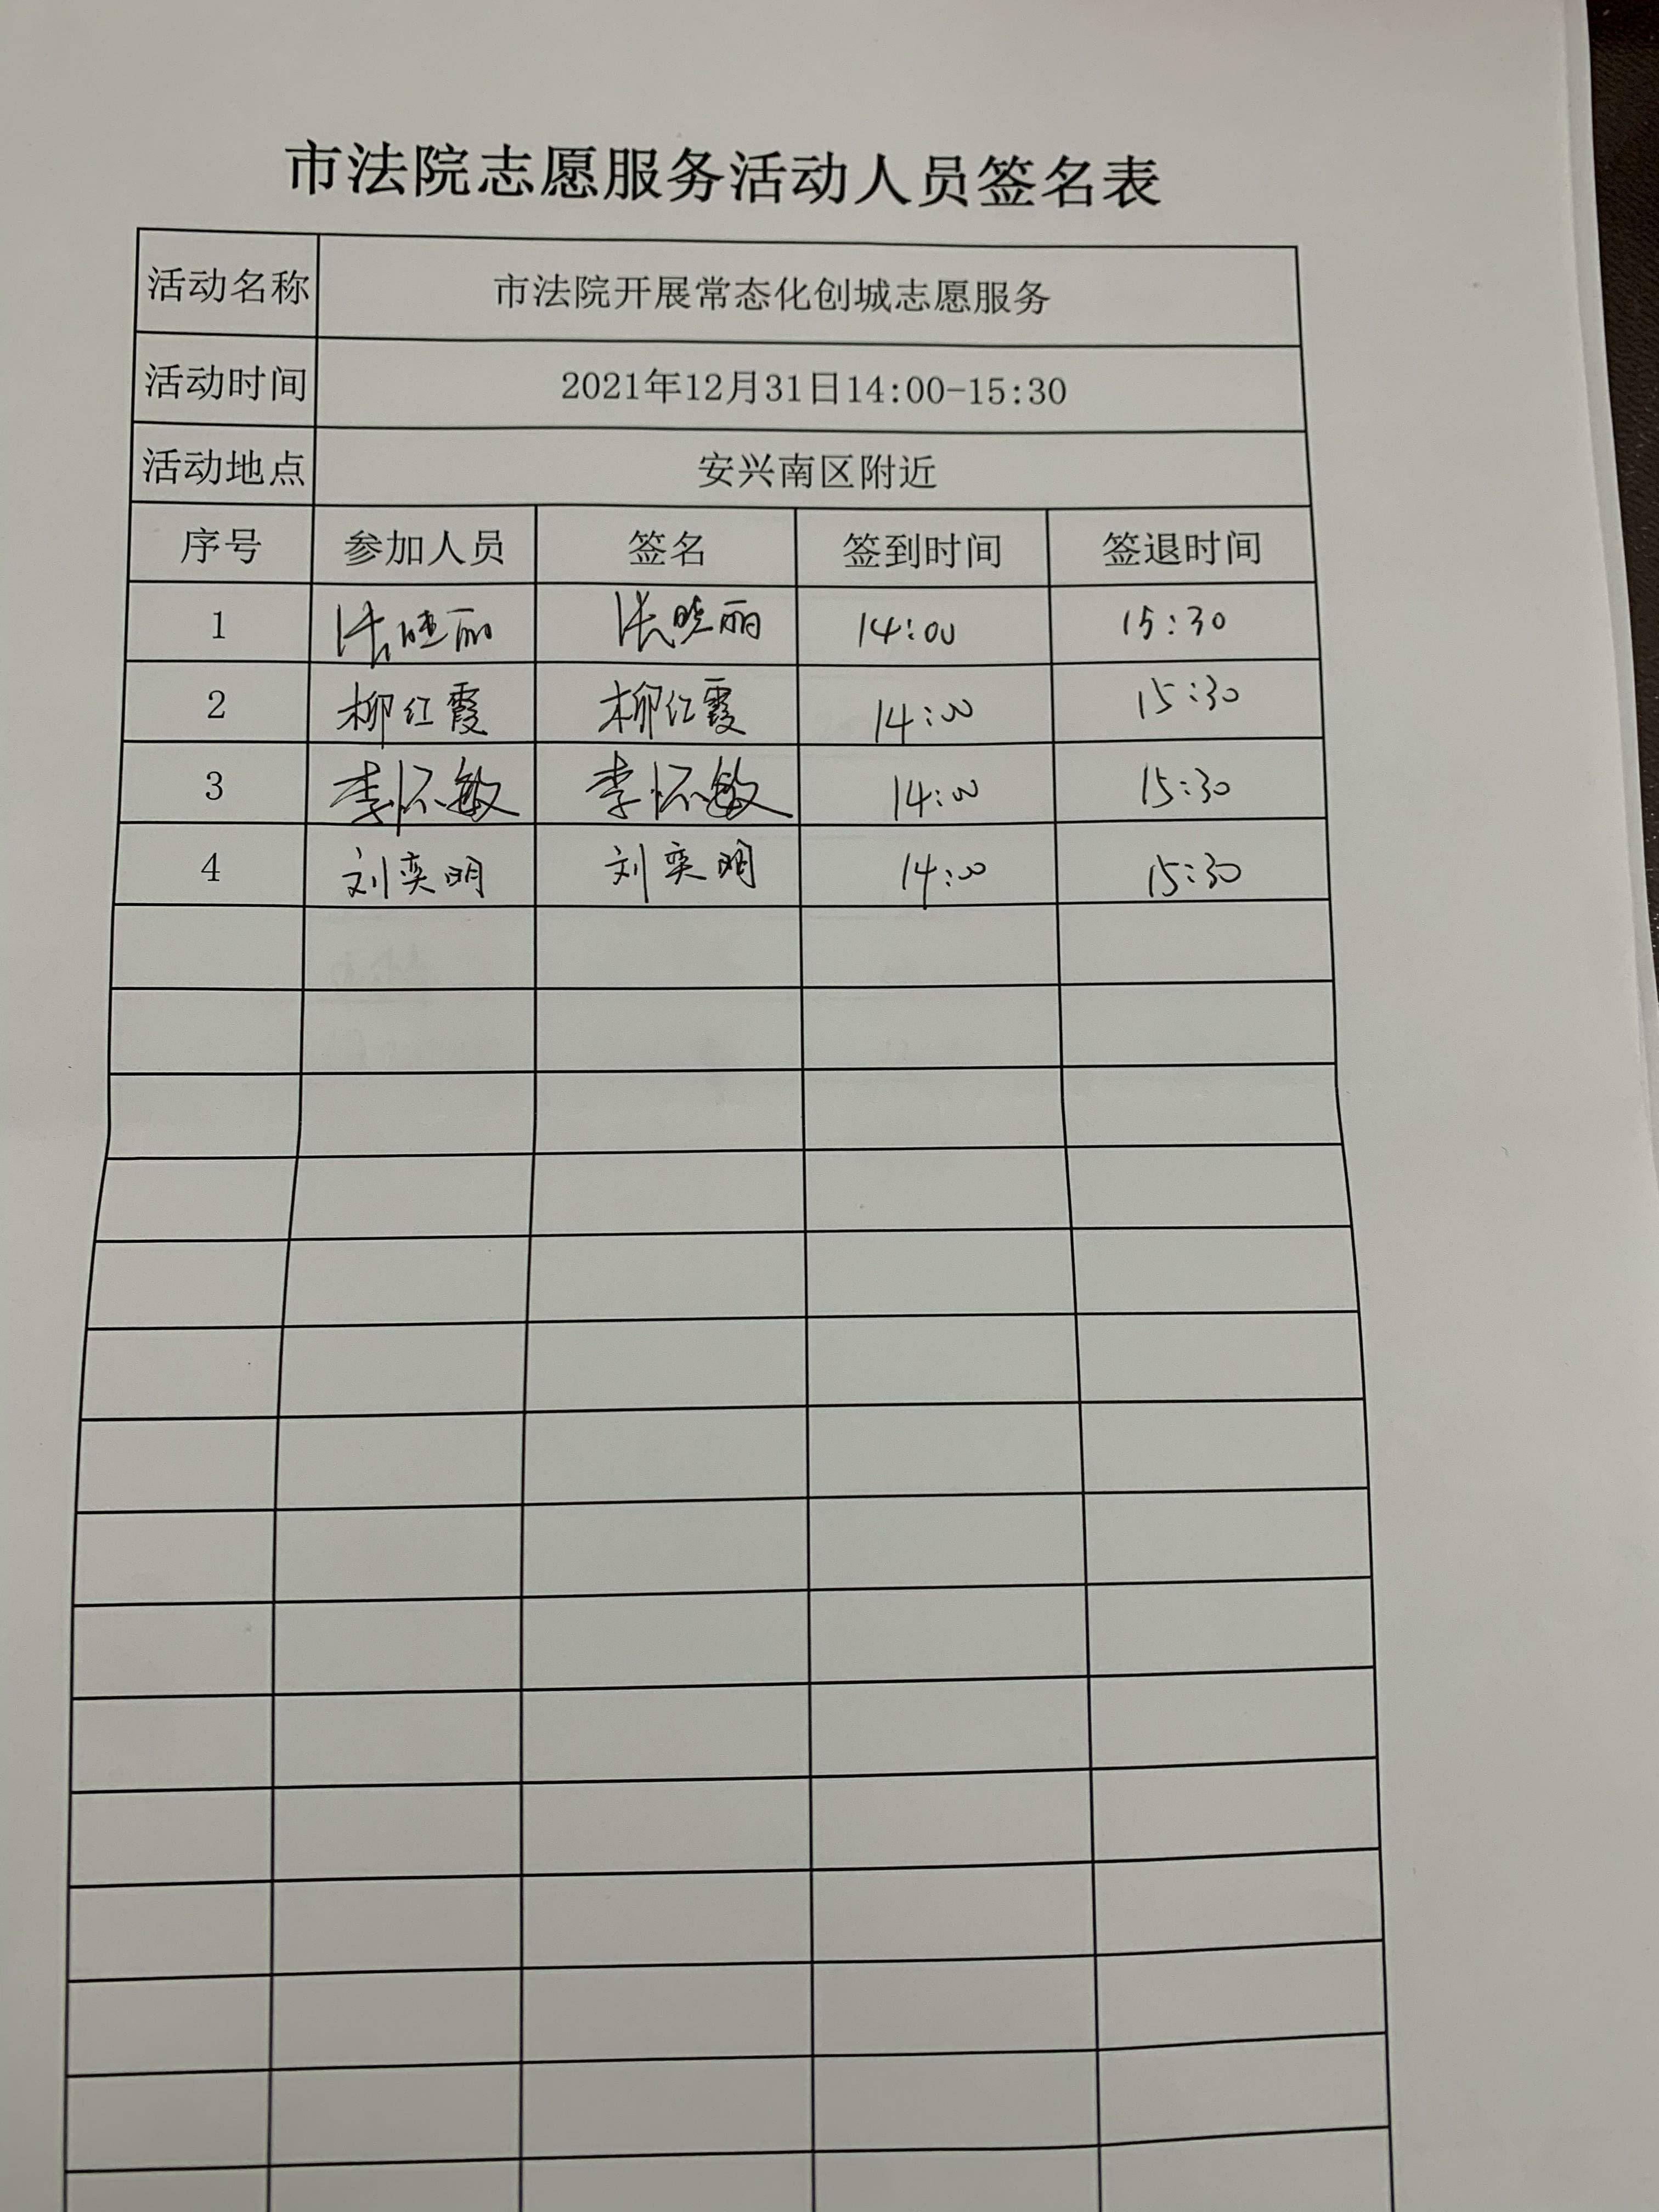 市法院志愿服务活动人员签名表
活动名称 市法院开展常态化创城志愿服务
活动时间 2021年12月31日14:00-15:30
活动地点 安兴南区附近
序号 参加人员 签名 签到时间 签退时间
1 张晓丽 张晓丽 14:00 15:30
2 柳红霞 柳红霞 14:00 15:30
3 李怀敏 李怀敏 14:00 15:30
4 刘奕明 刘奕明 14:00 15:30